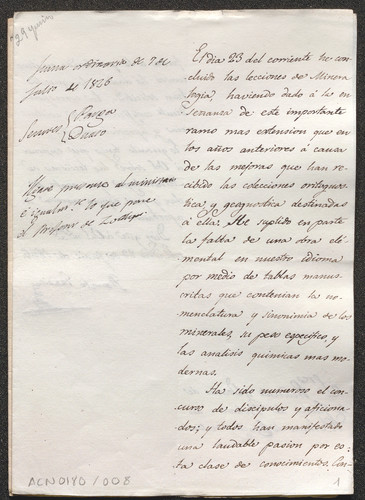 29 junio
Junta ordinaria de 7 de
Julio de 1826
Señores
Pareja
Duaso
Hágase presente al ministerio
é igualm.te lo que pase
el Profesor de
El dia 23 del corriente he con-
cluido las lecciones de Minera-
logia, haviendo dado á la en-
señanza de este importante
ramo mas extension que en
los años anteriores á causa
de las mejoras que han re-
cibido las colecciones orictognos-
tica, y geognostica destinadas
á ella. He suplido en parte
la falta de una obra ele-
mental en nuestro idioma
por medio de tablas manus-
critas que contenian la no-
menclatura y sinonimia de los
minerales, su peso especifico, y
las analisis quimicas mas mo-
dernas.
Ha sido numeroso el con-
curso de discipulos y aficiona-
dos; y todos han manifestado
una laudable pasion por es-
ta clase de conocimientos. Con-
ACN0180/008
1